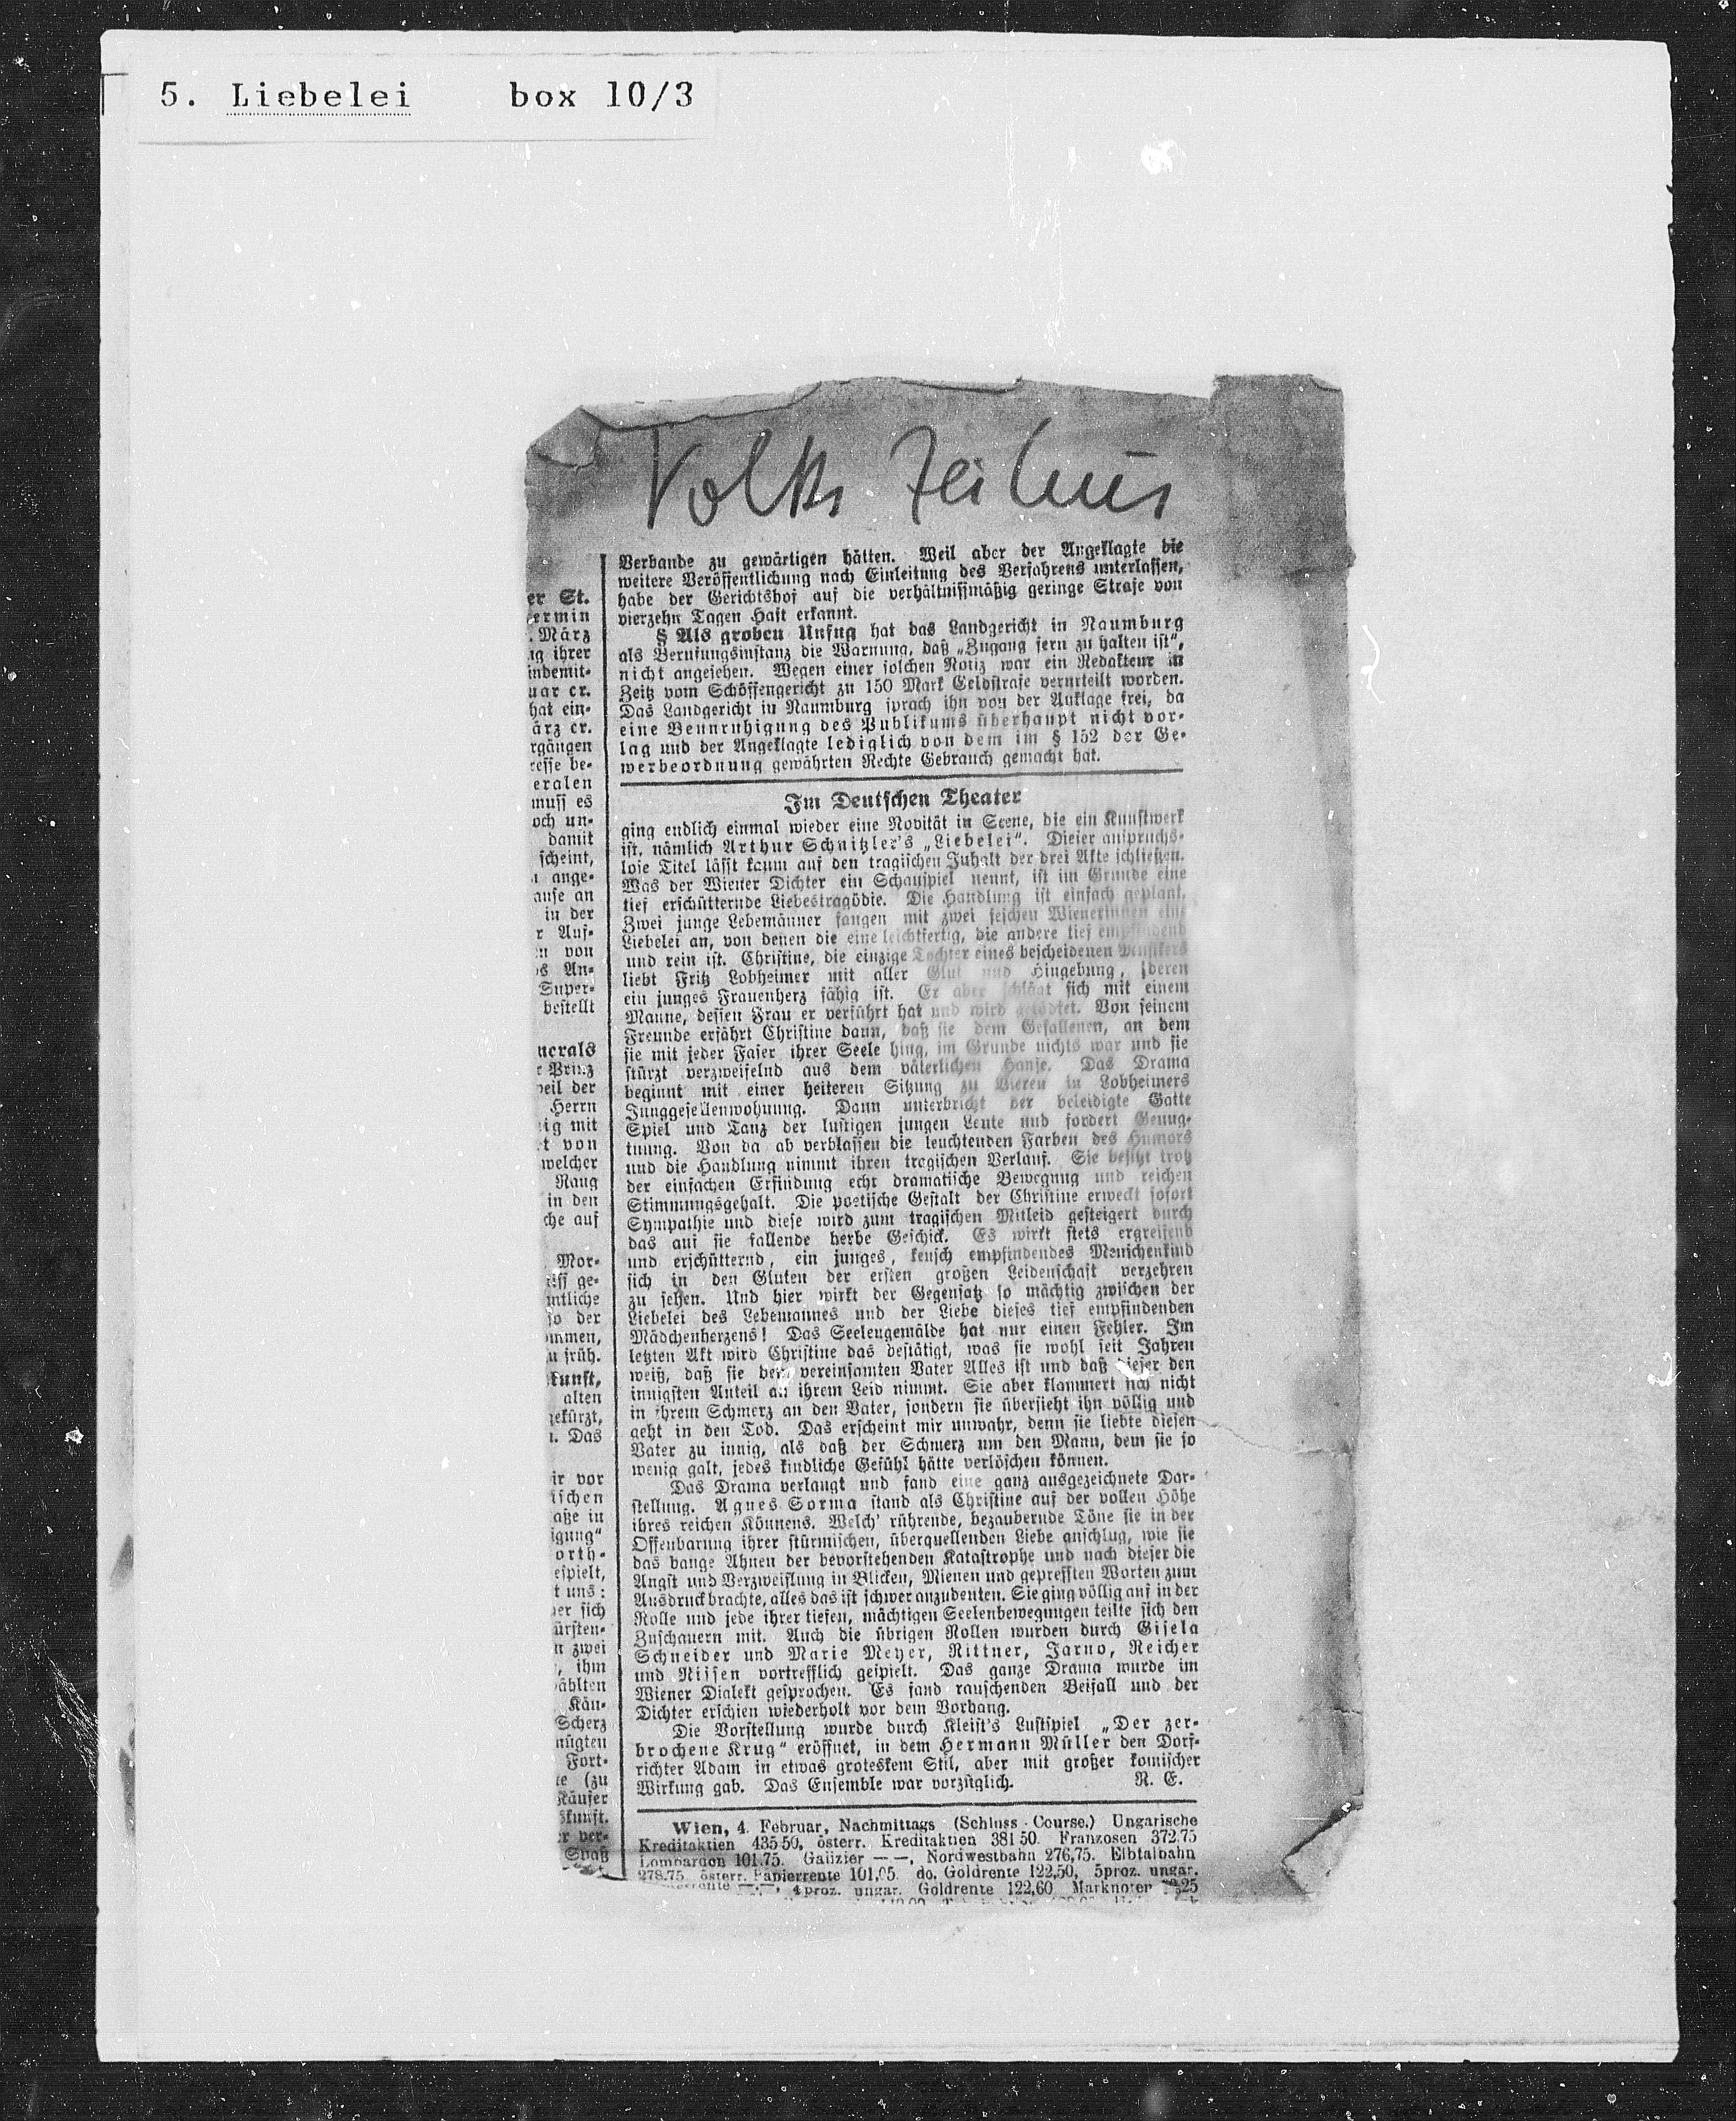 5. Liebelei box 10/3
Volks Zeitung
Verbande zu gewärtigen hätten. Weil aber der Angeklagte die
weitere Veröffentlichung nach Einleitung des Verfahrens unterlassen,
habe der Gerichtshof auf die verhältnißmäßig geringe Strafe von
vierzehn Tagen Haft erkannt.
§ Als groben Unfug hat das Landgericht in Naumburg
als Berufungsinstanz die Warnung, daß „Zugang fern zu halten ist“,
nicht angesehen. Wegen einer solchen Notiz war ein Redakteur in
Zeitz vom Schöffengericht zu 150 Mark Geldstrafe verurteilt worden.
Das Landgericht in Naumburg sprach ihn von der Anklage frei, da
eine Beunruhigung des Publikums überhaupt nicht vor-
lag und der Angeklagte lediglich von dem im § 152 der Ge-
werbeordnung gewährten Rechte Gebrauch gemacht hat.
Im Deutschen Theater
ging endlich einmal wieder eine Novität in Scene, die ein Kunstwerk
ist, nämlich Arthur Schnitzler's „Liebelei“. Dieser anspruchs-
lose Titel lässt kaum auf den tragischen Inhalt der drei Akte schließen.
Was der Wiener Dichter ein Schauspiel nennt, ist im Grunde eine
tief erschütternde Liebestragödie. Die Handlung ist einfach geplant.
Zwei junge Lebemänner fangen mit zwei feschen Wienerinnen eine
Liebelei an, von denen die eine leichtfertig, die andere tief empfindend
und rein ist. Christine, die einzige Tochter eines bescheidenen Musikers
liebt Fritz Lobheimer mit aller Glut und Hingebung, deren
ein junges Frauenherz fähig ist. Er aber schlägt sich mit einem
Manne, dessen Frau er verführt hat und wird getödtet. Von seinem
Freunde erfährt Christine dann, daß sie dem Gefallenen, an dem
sie mit jeder Faser ihrer Seele hing, im Grunde nichts war und sie
stürzt verzweifelnd aus dem väterlichen Hause. Das Drama
beginnt mit einer heiteren Sitzung zu Vieren in Lobheimers
Junggesellenwohnung. Dann unterbricht der beleidigte Gatte
Spiel und Tanz der lustigen jungen Leute und fordert Genug-
tuung. Von da ab verblassen die leuchtenden Farben des Humors
und die Handlung nimmt ihren tragischen Verlauf. Sie besitzt trotz
der einfachen Erfindung echt dramatische Bewegung und reichen
Stimmungsgehalt. Die poetische Gestalt der Christine erweckt sofort
Sympathie und diese wird zum tragischen Mitleid gesteigert durch
das auf sie fallende herbe Geschick. Es wirkt stets ergreifend
und erschütternd, ein junges, keusch empfindendes Menschenkind
sich in den Gluten der ersten großen Leidenschaft verzehren
zu sehen. Und hier wirkt der Gegensatz so mächtig zwischen der
Liebelei des Lebemannes und der Liebe dieses tief empfindenden
Mädchenherzens! Das Seelengemälde hat nur einen Fehler. Im
letzten Akt wird Christine das bestätigt, was sie wohl seit Jahren
weiß, daß sie dem vereinsamten Vater Alles ist und daß dieser den
innigsten Anteil an ihrem Leid nimmt. Sie aber klammert sich nicht
in ihrem Schmerz an den Vater, sondern sie übersieht ihn völlig und
geht in den Tod. Das erscheint mir unwahr, denn sie liebte diesen
Vater zu innig, als daß der Schmerz um den Mann, dem sie so
wenig galt, jedes kindliche Gefühl hätte verlöschen können.
Das Drama verlangt und fand eine ganz ausgezeichnete Dar-
stellung. Agnes Sorma stand als Christine auf der vollen Höhe
ihres reichen Könnens. Welch' rührende, bezaubernde Töne sie in der
Offenbarung ihrer stürmischen, überquellenden Liebe anschlug, wie sie
das bange Ahnen der bevorstehenden Katastrophe und nach dieser die
Angst und Verzweiflung in Blicken, Mienen und gepreßten Worten zum
Ausdruck brachte, alles das ist schwer anzudeuten. Sie ging völlig auf in der
Rolle und jede ihrer tiefen, mächtigen Seelenbewegungen teilte sich den
Zuschauern mit. Auch die übrigen Rollen wurden durch Gisela
Schneider und Marie Meyer, Rittner, Jarno, Reicher
und Nissen vortrefflich gespielt. Das ganze Drama wurde im
Wiener Dialekt gesprochen. Es fand rauschenden Beifall und der
Dichter erschien wiederholt vor dem Vorhang.
Die Vorstellung wurde durch Kleist's Lustspiel „Der zer-
brochene Krug“ eröffnet, in dem Hermann Müller den Dorf-
richter Adam in etwas groteskem Stil, aber mit großer komischer
Wirkung gab. Das Ensemble war vorzüglich. R. E.
Wien, 4. Februar, Nachmittags (Schluss-Course.) Ungarische
Kreditaktien 435 50, österr. Kreditaktien 381 50. Franzosen 372.75
Lombarden 101.75. Galizier — —, Nordwestbahn 276,75. Elbtalbahn
278.75. österr. Papierrente 101,05. do. Goldrente 122,50, 5proz. ungar.
4proz. ungar. Goldrente 122,60 Marknoten
er St.
ermin
. März
ig ihrer
indemit-
uar cr.
hat ein-
ärz cr.
rgängen
resse be-
eralen
muss es
och un-
damit
scheint,
ange-
ause an
in der
r Auf-
von
s An-
Super-
bestellt
nerals
r Prinz
weil der
Herrn
ig mit
t von
welcher
Rang
in den
che auf
Mor-
ge-
mtliche
so der
ommen,
u früh.
kunft,
alten
gekürzt,
. Das
ir vor
ischen
aße in
igung“
orth-
espielt,
t uns:
er sich
ürsten-
n zwei
, ihm
ählten
Käu-
Scherz
nügten
Fort-
te (zu
Käufer
skunft.
r ver-
Spaß